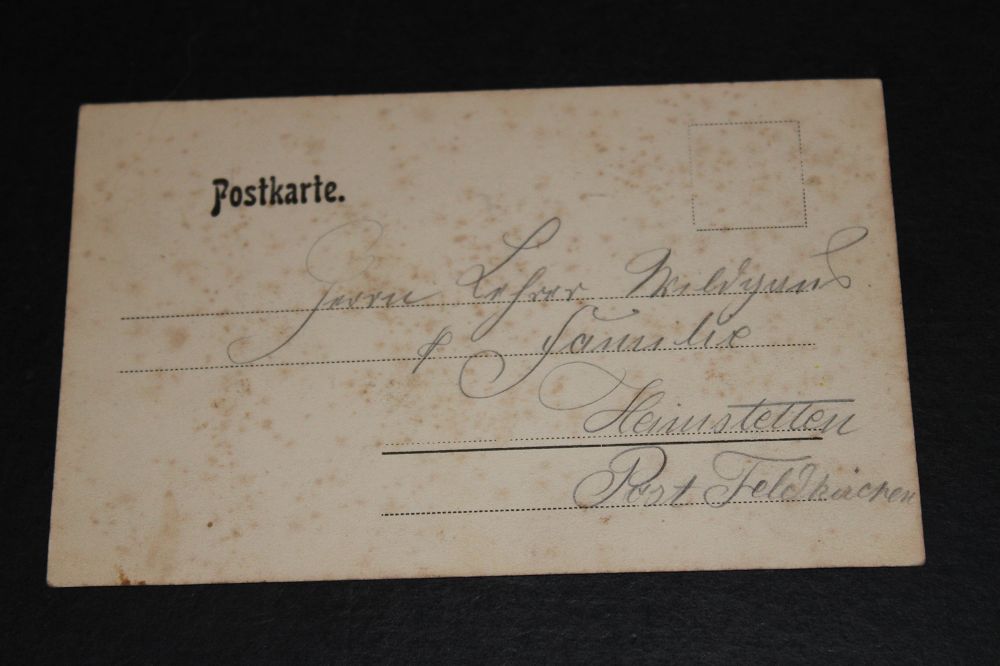 Postkarte.
Herrn Lehrer Wildgans
& Familie
Heimstetten
Post Feldkirchen